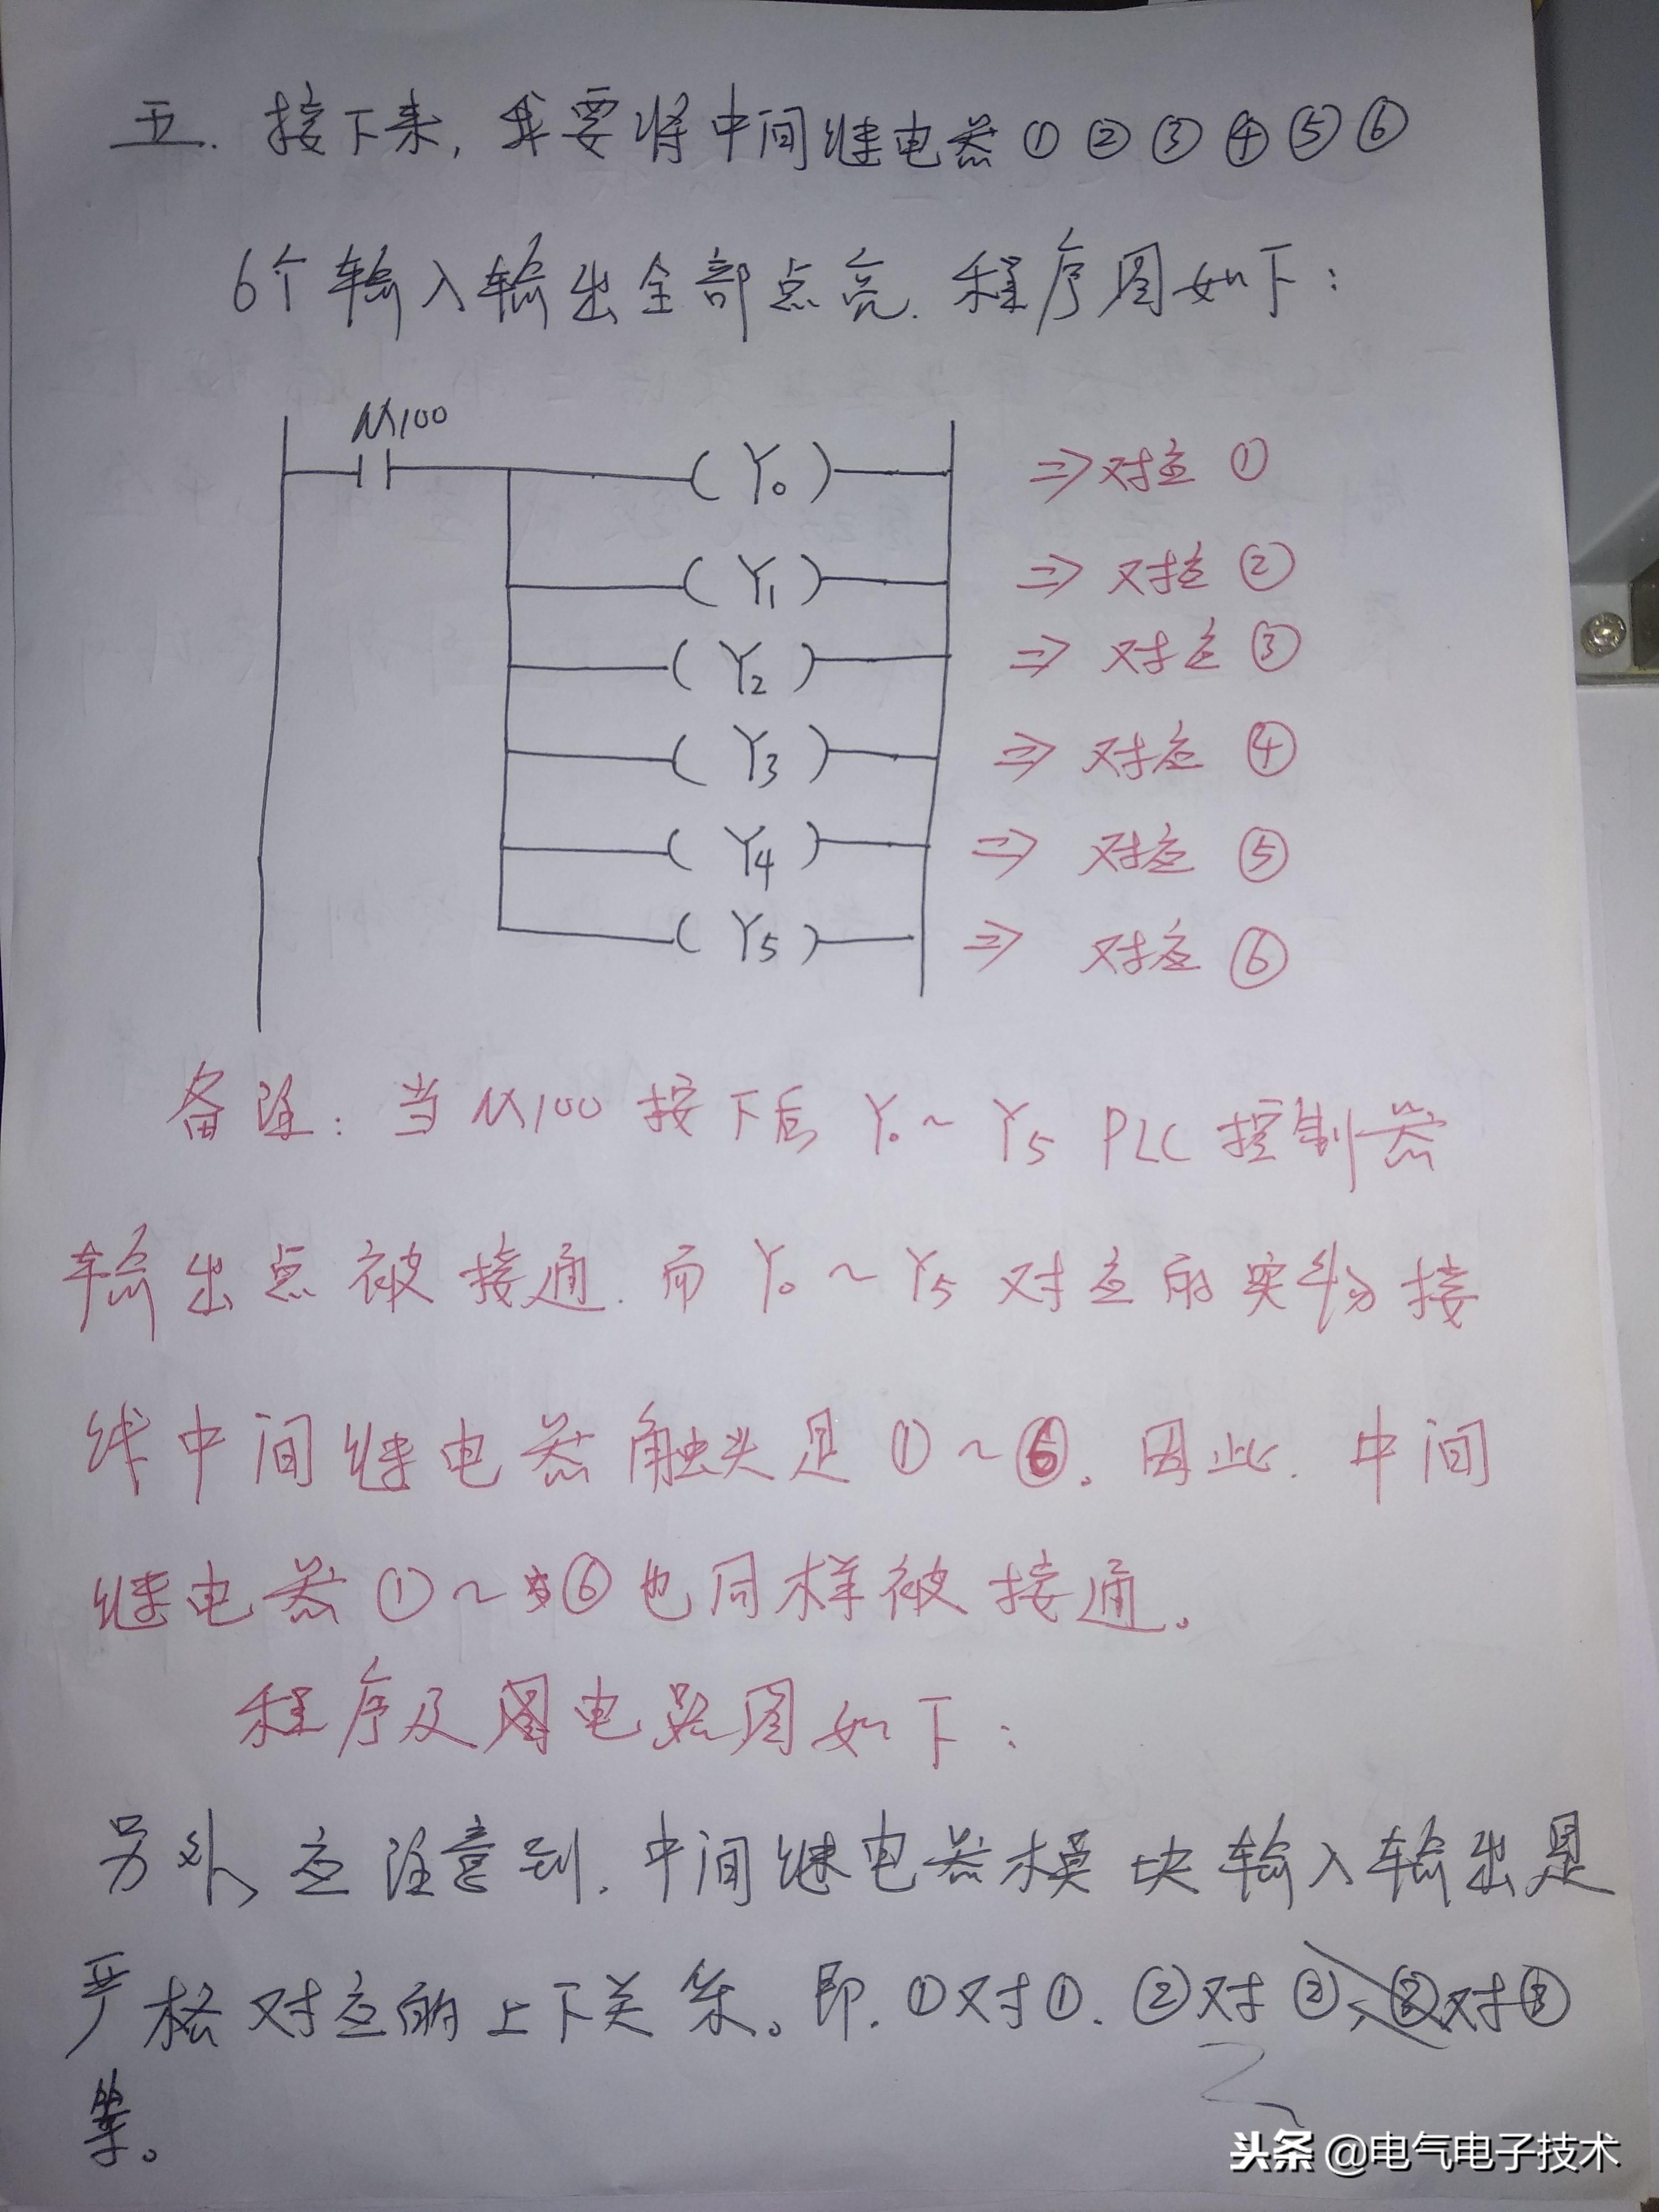 五. 接下来, 我要将中间继电器①②③④⑤⑥
6个输入输出全部点亮. 程序图如下:
M100
(Y0) ⇒对应 ①
(Y1) ⇒ 对应 ②
(Y2) ⇒ 对应 ③
(Y3) ⇒ 对应 ④
(Y4) ⇒ 对应 ⑤
(Y5) ⇒ 对应 ⑥
备注: 当M100按下后 Y0~Y5 PLC控制器
输出点被接通. 而Y0~Y5对应的实物接
线中间继电器触头是①~⑥. 因此. 中间
继电器①~⑥也同样被接通。
程序及电路图如下:
另外, 应注意到. 中间继电器模块输入输出是
严格对应的上下关系。即. ①对①. ②对②、③对③
等。
头条 @电气电子技术